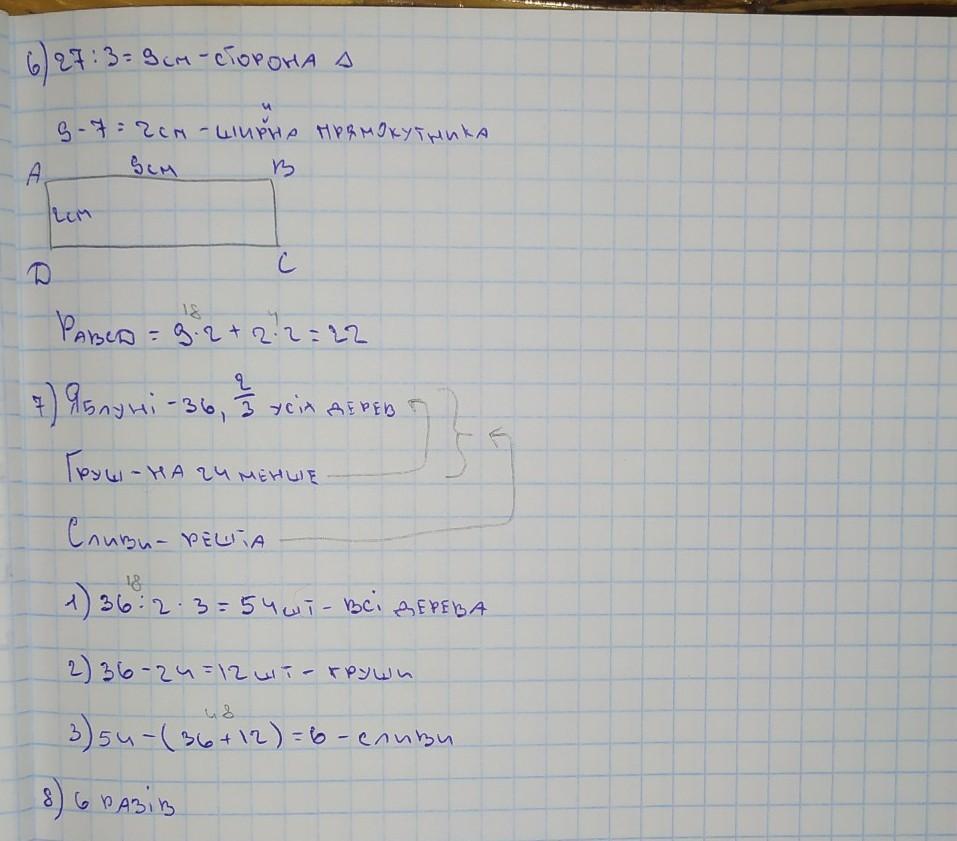 6) 27 : 3 = 9см - сторона Δ
и
9 - 7 = 2см - ширйна прямокутника
A 9см B
2см
D C
18 4
PABCD = 9·2 + 2·2 = 22
7) Яблуні - 36, 2/3 усіх дерев
Груш - на 24 менше
Сливи - решта
18
1) 36 : 2 · 3 = 54шт - всі дерева
2) 36 - 24 = 12шт - груши
48
3) 54 - (36 + 12) = 6 - сливи
8) 6 разів